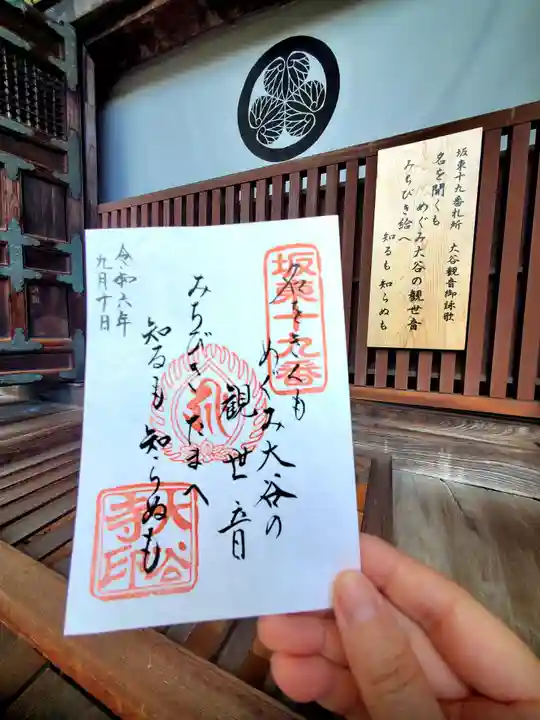 坂東十九番札所 大谷観音御詠歌
名を聞くも
めぐみ大谷の観世音
みちびき給へ
知るも知らぬも
坂東十九番
名をきくも
めぐみ大谷の
観世音
みちびきたまへ
知るも知らぬも
令和六年
九月十日
大谷
寺印